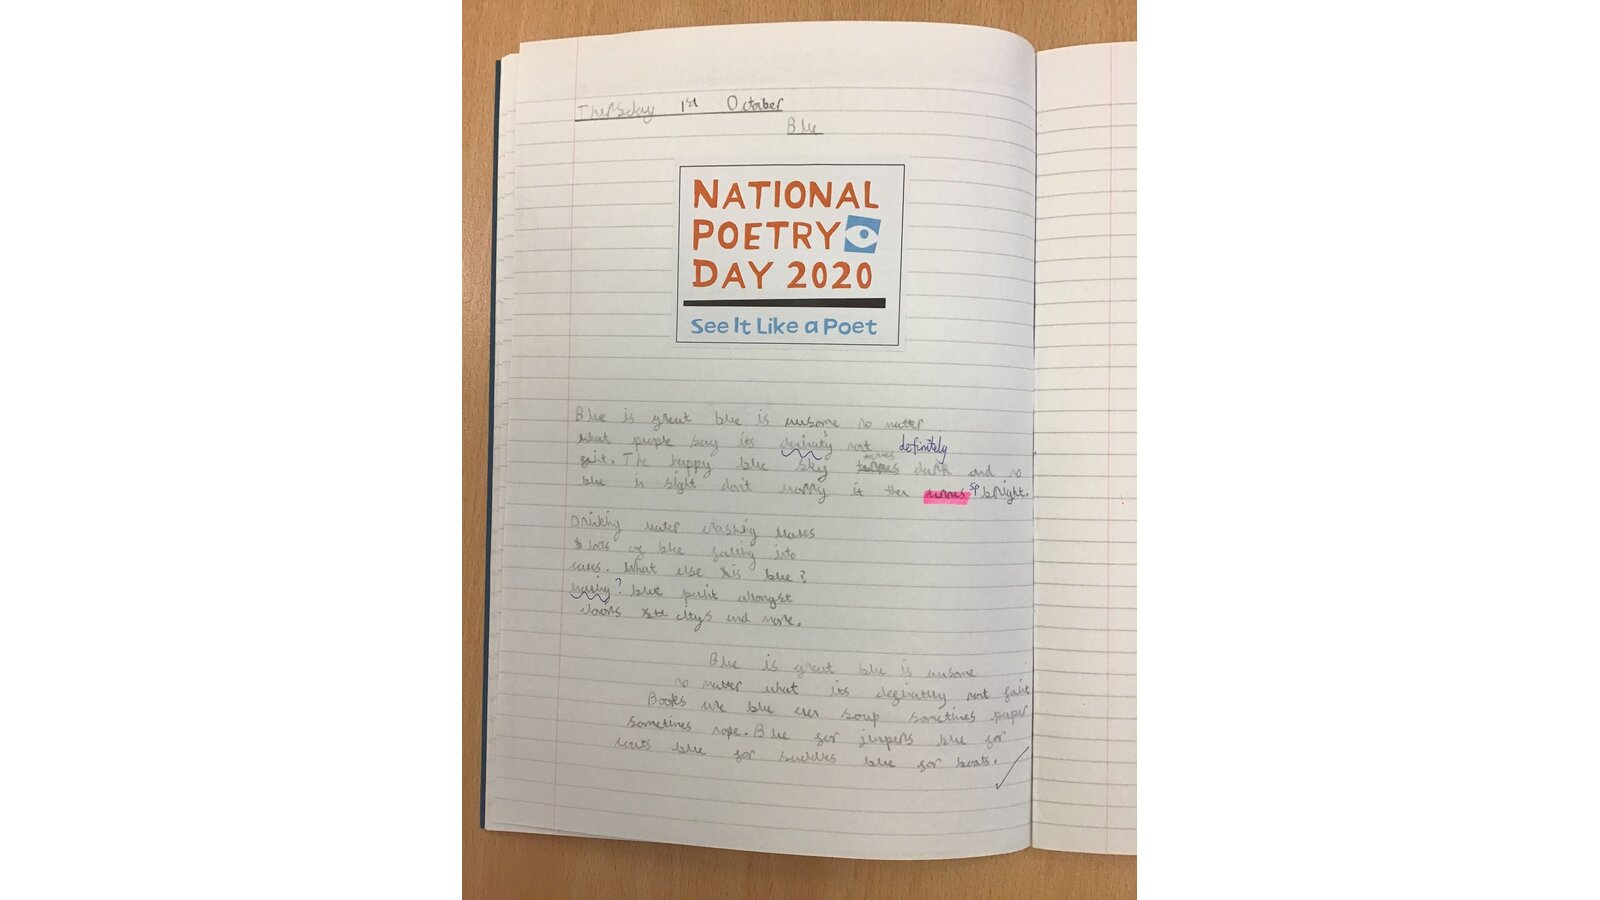 Thursday 1st October
Blue
NATIONAL
POETRY
DAY 2020
See It Like a Poet
Blue is great blue is awsome no matter
what people say its definatly not definitely
faint. The happy blue sky turnes dark and no
blue in sight don't worry it then turnes sp bright.
Drinking water crashing waves
lots of blue falling into
caves. What else is blue?
? blue paint alongst
doors citys and more.
Blue is great blue is awsome
no matter what its definatley not faint
Books are blue even soup sometimes paper
sometimes rope. Blue for jumpers blue for
coats blue for buddies blue for boats.